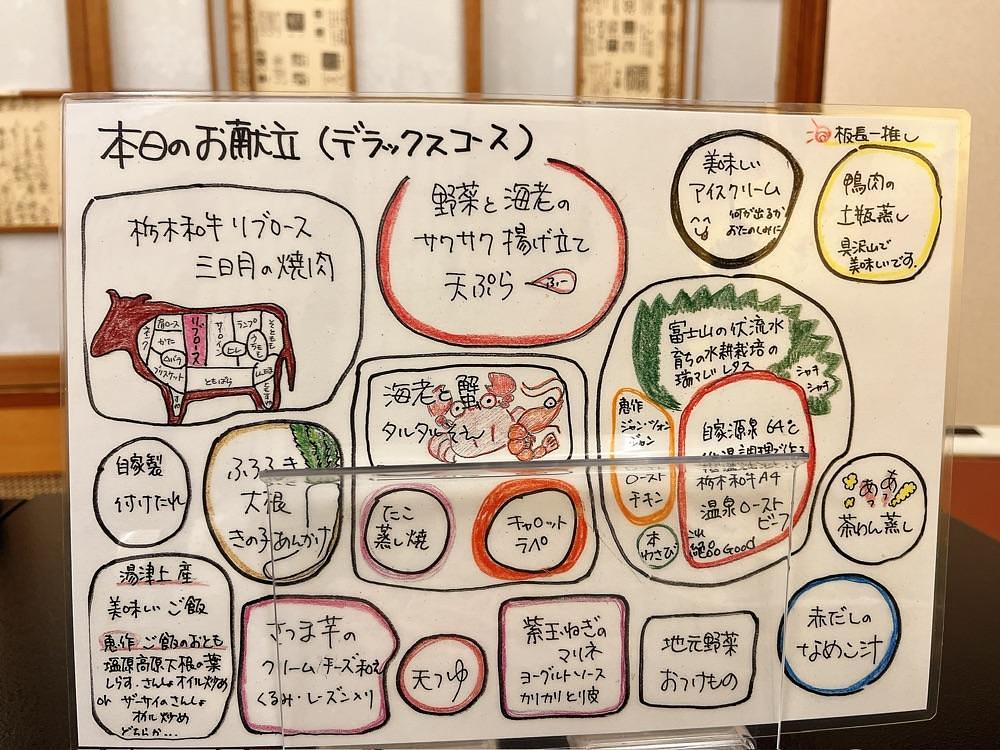 本日のお献立(デラックスコース)
板長一推し
栃木和牛リブロース
三日月の焼肉
ネック
肩ロース
かた
リブロース
サーロイン
ヒレ
ランプ
ともばら
野菜と海老の
サクサク揚げ立て
天ぷら
美味しい
アイスクリーム
何が出るか
おたのしみに
鴨肉の
土瓶蒸し
具沢山で
美味いです。
海老と蟹
タルタルそえ!
たこ
蒸し焼
キャロット
ラペ
富士山の伏流水
育ちの水耕栽培の
シャキ
シャキ
恵作
ジャン
ロースト
チキン
本
わさび
自家源泉64℃
栃木和牛A4
温泉ロースト
ビーフ
GOOD
自家製
付けたれ
ふろふき
大根
きの子あんかけ
あっ
あっ
茶わん蒸し
湯津上産
美味いご飯
恵作ご飯のおとも
塩原高原大根の葉
しらす、さんしょオイル炒め
or ザーサイのさんしょ
オイル炒め
どちらか…
さつま芋の
クリームチーズ和え
くるみ・レーズン入り
天つゆ
紫玉ねぎの
マリネ
ヨーグルトソース
カリカリとり皮
地元野菜
おつけもの
赤だしの
なめこ汁